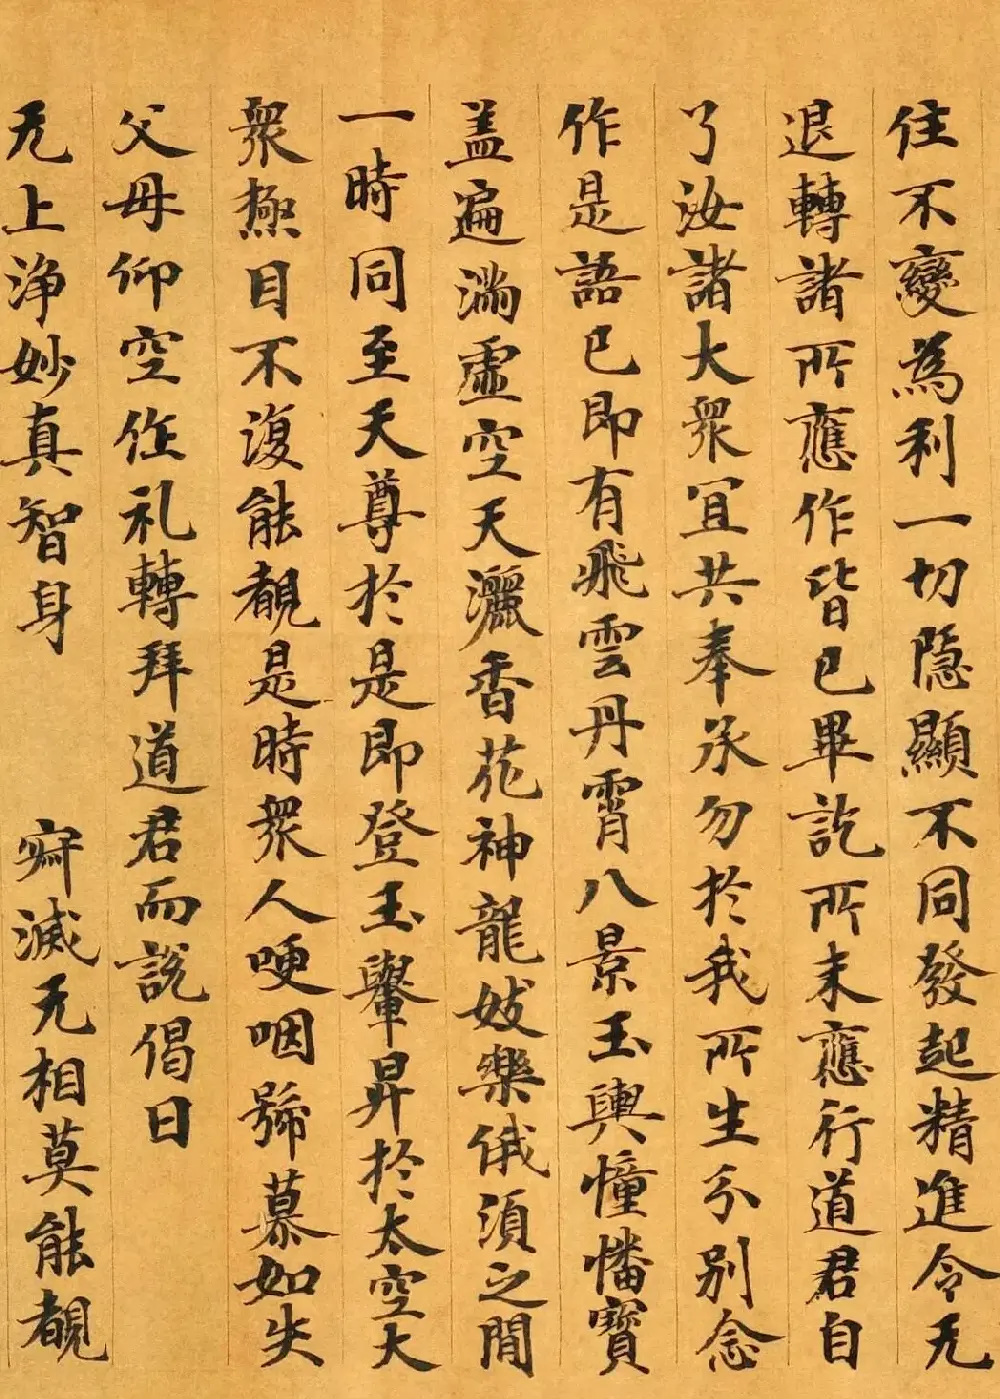 住不變為利一切隱顯不同發起精進令无
退轉諸所應作皆已畢訖所未應行道君自
了汝諸大眾宜共奉承勿於我所生分別念
作是語已即有飛雲丹霄八景玉輿幢幡寶
盖遍滿虛空天灑香花神龍妓樂俄須之間
一時同至天尊於是即登玉轝昇於太空大
眾極目不復能覩是時眾人哽咽號慕如失
父母仰空作礼轉拜道君而說偈曰
无上淨妙真智身 寂滅无相莫能覩